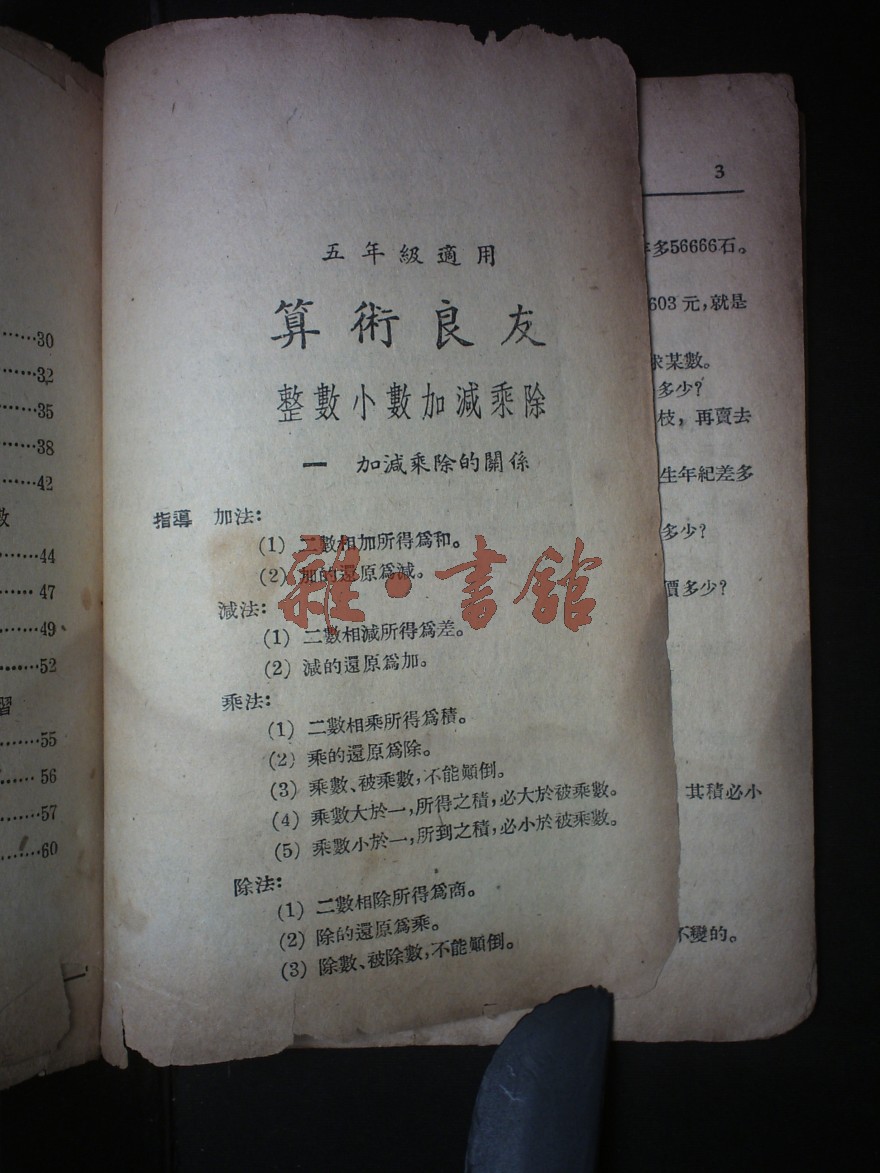 ……30
……32
……35
……38
……42
數
……44
……47
……49
……52
習
……55
……56
……57
……60
五年級適用
算術良友
整數小數加減乘除
一 加減乘除的關係
指導 加法：
(1) 二數相加所得爲和。
(2) 加的還原爲減。
減法：
(1) 二數相減所得爲差。
(2) 減的還原爲加。
乘法：
(1) 二數相乘所得爲積。
(2) 乘的還原爲除。
(3) 乘數、被乘數，不能顚倒。
(4) 乘數大於一，所得之積，必大於被乘數。
(5) 乘數小於一，所到之積，必小於被乘數。
除法：
(1) 二數相除所得爲商。
(2) 除的還原爲乘。
(3) 除數、被除數，不能顚倒。
雜·書館
3
多56666石。
603元，就是
求某數。
多少？
枝，再賣去
生年紀差多
多少？
價多少？
其積必小
不變的。